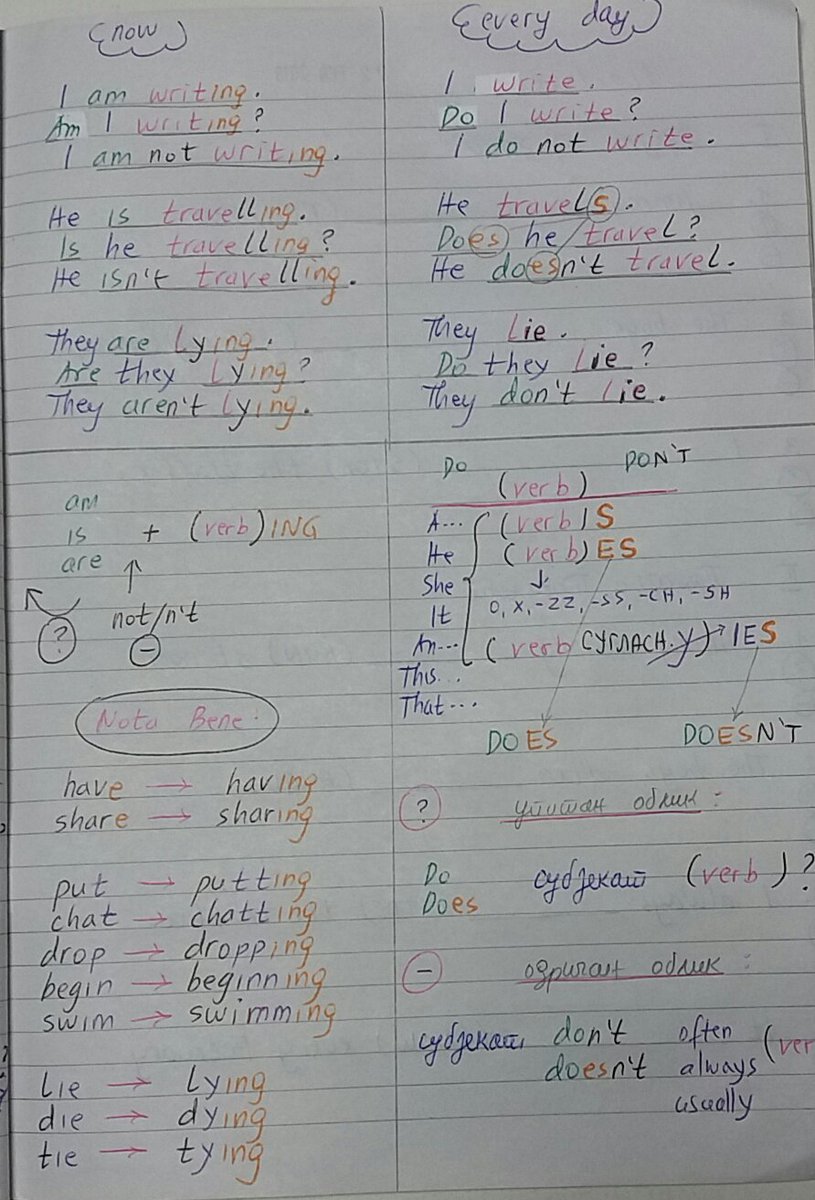 now
I am writing.
Am I writing?
I am not writing.
He is travelling.
Is he travelling?
He isn't travelling.
They are lying.
Are they lying?
They aren't lying.
every day
I write.
Do I write?
I do not write.
He travels.
Does he travel?
He doesn't travel.
They lie.
Do they lie?
They don't lie.
am
is + (verb)ING
are
? not/n't
−
Nota Bene:
have → having
share → sharing
put → putting
chat → chatting
drop → dropping
begin → beginning
swim → swimming
lie → lying
die → dying
tie → tying
DO DON'T
(verb)
A... (verb)S
He (verb)ES
She
It O, X, -ZZ, -SS, -CH, -SH
An... (verb СУГЛАСН. y) → IES
This...
That...
DOES DOESN'T
? упитан облик:
Do субјекат (verb)?
Does
− одричан облик:
субјекат don't often (ver
doesn't always
usually